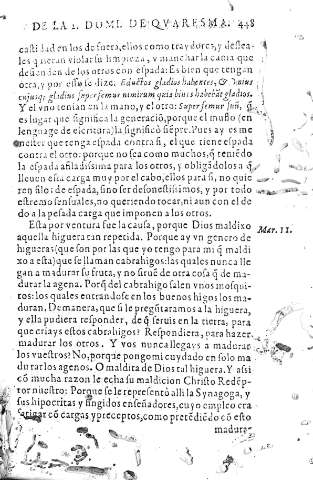 DE LA 2. DOMI. DE QVARESMA. 448
casti dad en los de fuera, ellos como traydores, y deslea-
les q̃ rieran violar su limpieza, y manchar la capa que
defienden de los otros con espada: Es bien que tengan
otra, y por esso se dize. Eductos gladios habentes, &
cuiusq; gladius super femur nimirum quia binis habebãt gladios.
Y el vno tenían en la mano, y el otro: Super femur suũ, q̃
es lugar que significa la generació, porque el muslo (en
lenguage de escritura) la significó siépre. Pues ay es me
nester que tenga espada contra si, el que tiene espada
contra el otro: porque no sea como muchos, q̃ teniẽdo
la espada afiladissima para los otros, y obligãdolos a q̃
lleuen essa carga muy por el cabo, ellos para si, no quie
ren filo: de espada, sino ser desonestissimos, y por todo
estremo sensuales, no queriendo tocar, ni aun con el de
do a la pesada carga que imponen a los otros.
Esta por ventura fue la causa, porque Dios maldixo
Mar. 11.
aquella higuera tan repetida. Porque ay vn genero de
higueras (que son por las que yo tengo para mi q̃ maldi
xo a esta) que se llaman cabrahigos: las quales nunca lle
gan a madurar su fruta, y no siruẽ de otra cosa q̃ de ma-
durar la agena. Porq̃ del cabrahigo salen vnos mosqui-
tos: los quales entrandose en los buenos higos los ma-
duran, De manera, que si le pregũtaramos a la higuera,
y ella pudiera responder, de q̃ seruis en la tierra, para
que criays estos cabrahigos? Respondiera, para hazer
madurar los otros. Y vos nunca llegays a madurar
los vuestros? No, porque pongo mi cuydado en solo ma
durar los agenos. O maldita de Dios tal higuera. Y assi
cõ mucha razon le echa su maldicion Christo Redẽp-
tor nuestro: Porque se le representò alli la Synagoga, y
sus hipocritas y fingidos enseñadores, cuyo empleo era
cargar cõ cargas y preceptos, como pretẽdiẽdo cõ esto
madura-